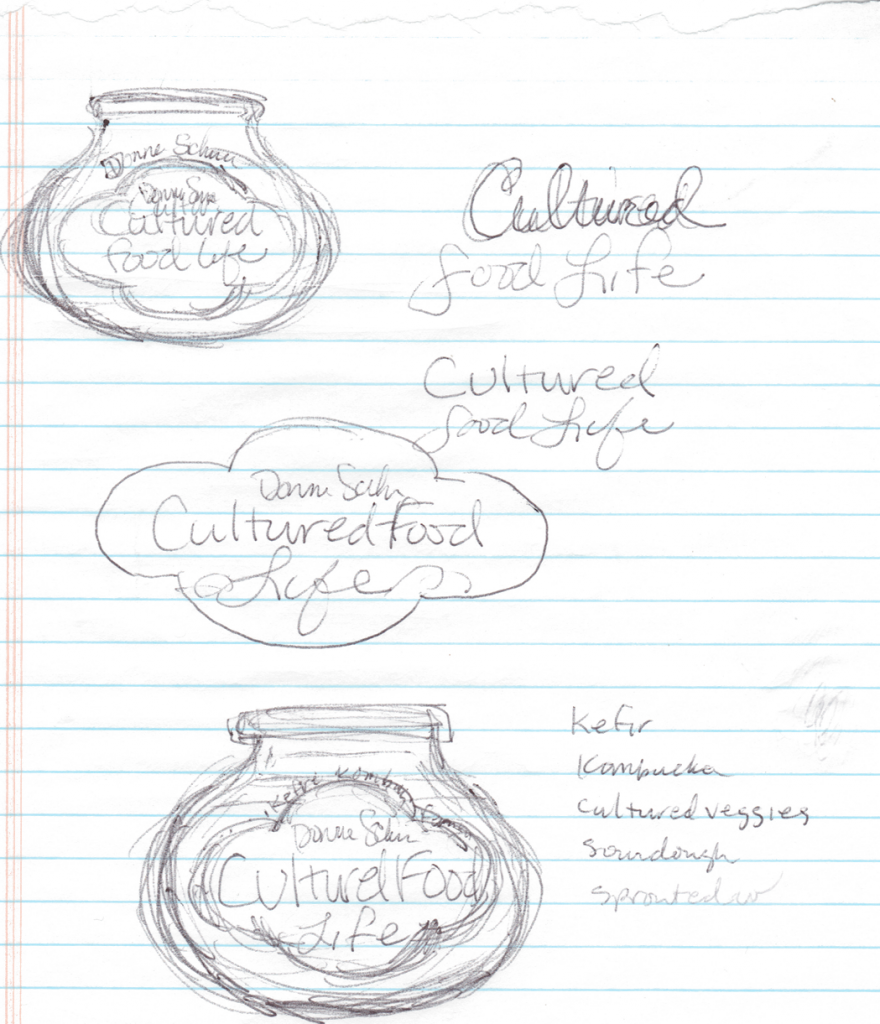 Donna
Cultured
food Life
Cultured
food Life
Cultured
food Life
Donna
Cultured Food
Life
Kefir Kombu
Donna
Cultured Food
Life
Kefir
Kombucha
cultured veggies
sourdough
sprouted